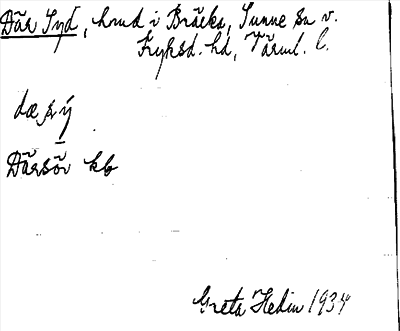 Där Syd, hmd i Bräcka, Sunne sn v.
Fryksd. hd, Värml. l.
dæ sý
Därsör kb
Greta Hedin 1934